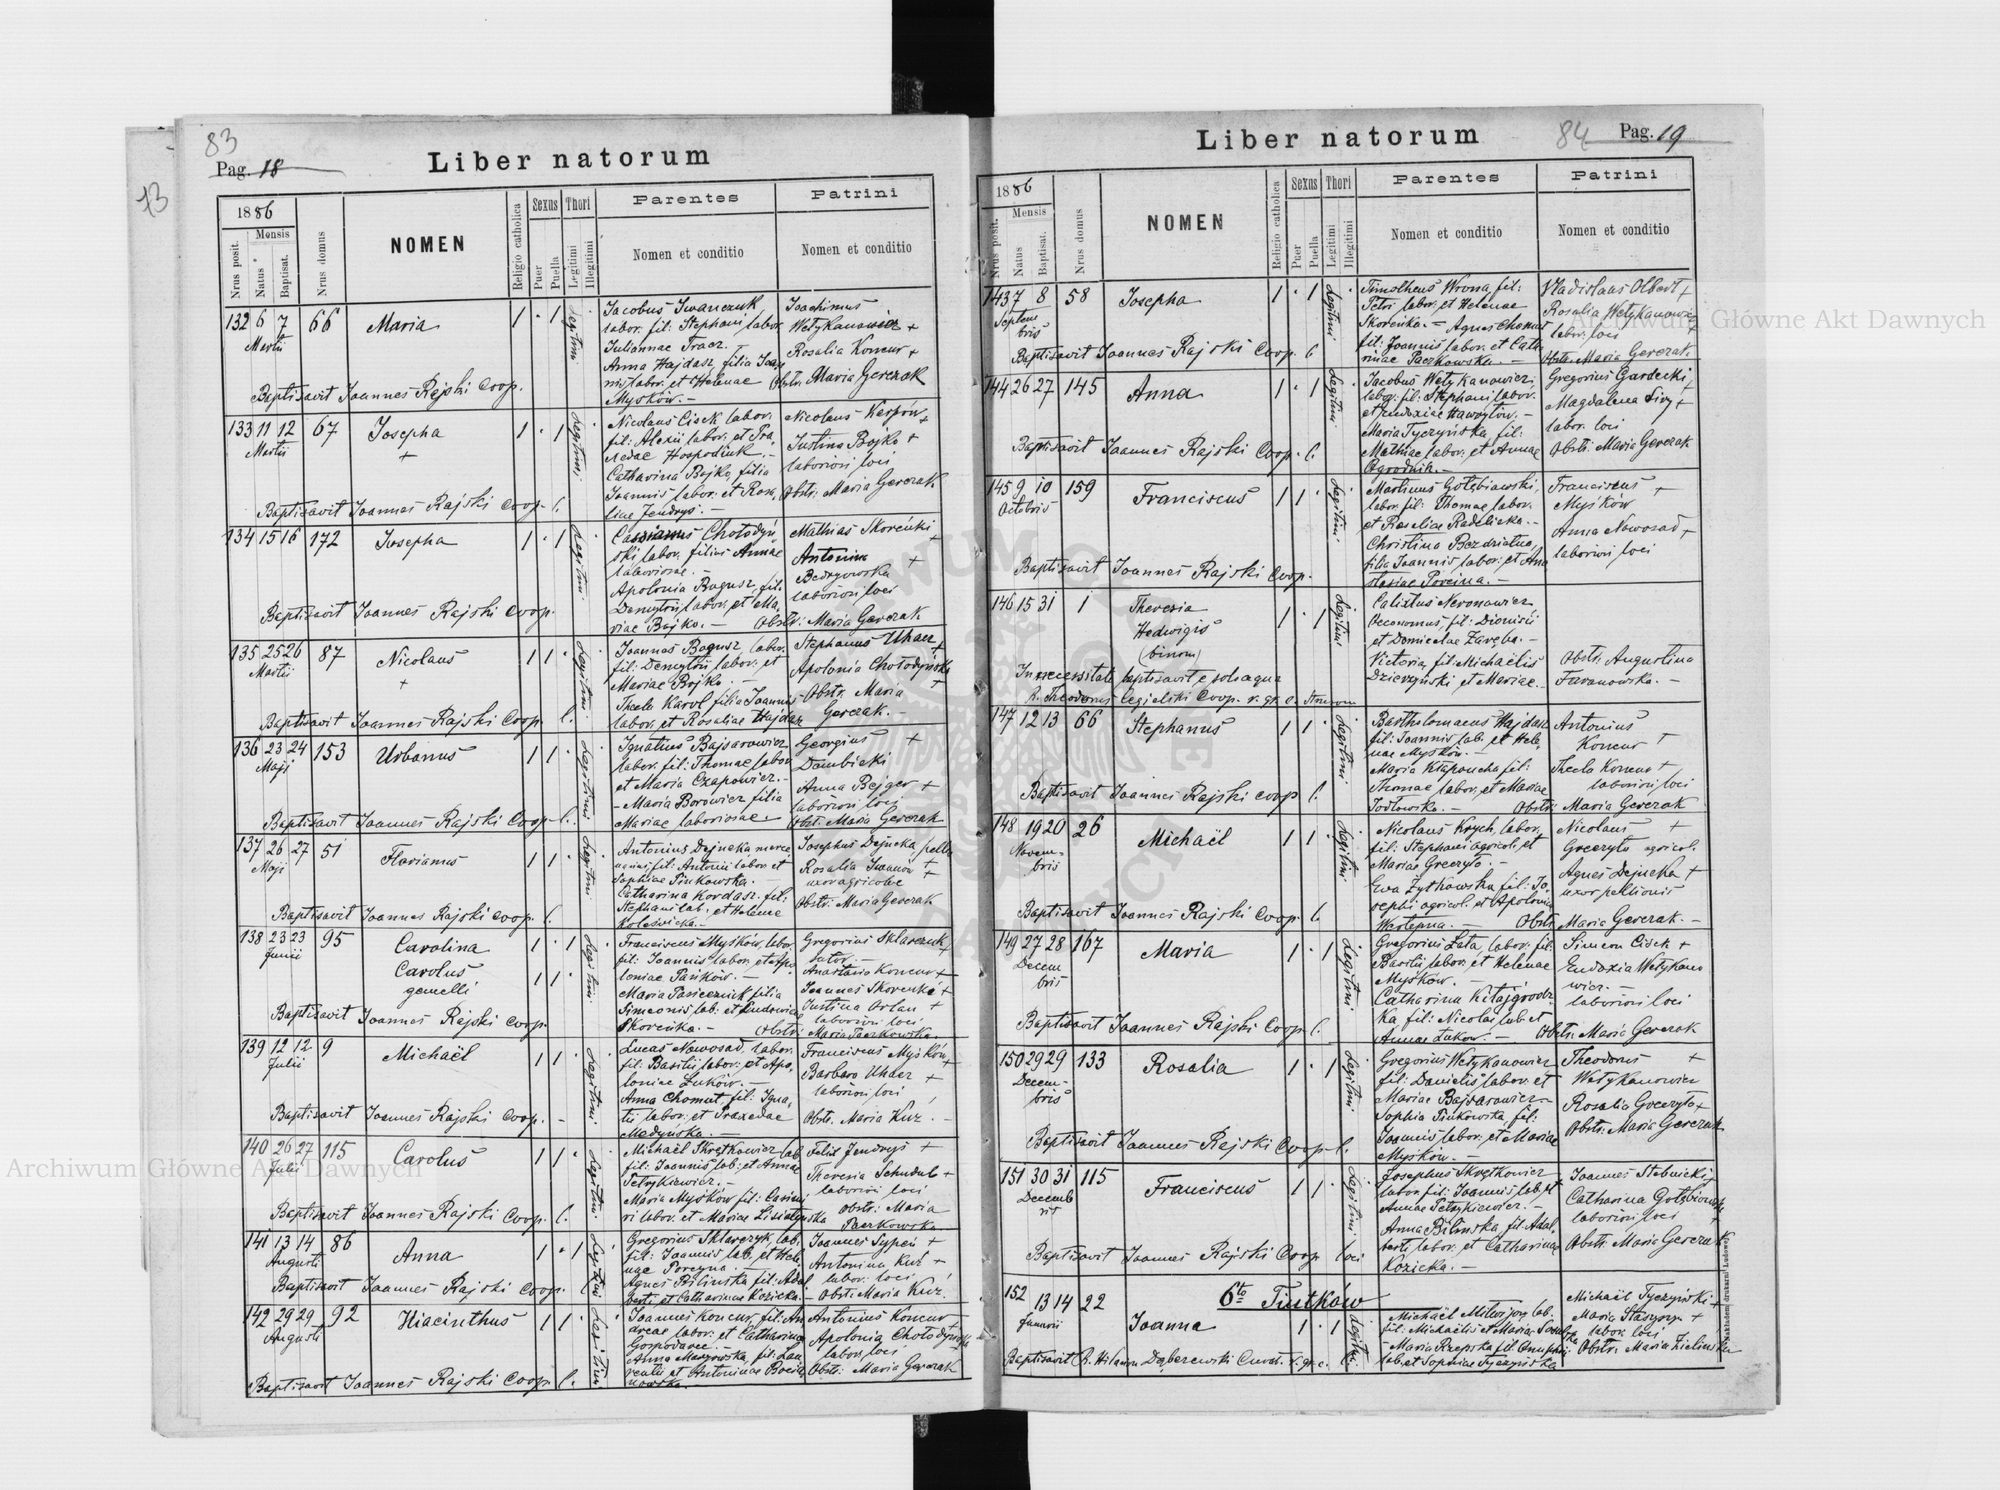 83
Pag. 18
Liber natorum
13
1886
Mensis
Nrus posit.
Natus
Baptisat.
Nrus domus
NOMEN
Religio catholica
Sexus
Puer
Puella
Thori
Legitimi
Illegitimi
Parentes
Nomen et conditio
Patrini
Nomen et conditio
132 6 7 66 Maria 1 · 1 Legitimi
Martii
Jacobus Iwanczuk
labor. fil: Stephani labor.
Juliannae Tracz. —
Anna Hajdasz, filia Joan
nis, labor. et Helenae
Myśków. —
Joachimus
Wetykanowicz +
Rosalia Koncur +
Obstr. Maria Gerczak
Baptisavit Joannes Rajski Coop.
133 11 12 67 Josepha 1 · 1 Legitimi
Martii +
Nicolaus Cisek labor.
fil: Alexii labor. et Pra
xedae Hospodiuk. —
Catharina Bojko, filia
Joannis labor. et Rosa,
liae Jendrys. —
Nicolaus Karpów +
Justina Bojko +
laboriosi loci
Obstr: Maria Gerczak
Baptisavit Joannes Rajski Coop. l.
134 15 16 172 Josepha 1 · 1 Legitimi
Cassianus Chołodyń
ski labor. filius Annae
laboriosae. —
Apolonia Bogusz, fil:
Demytrii labor. et Ma,
riae Bojko. —
Mathias Skoreńki +
Antonina +
laboriosi loci
Obstr: Maria Gerczak
Baptisavit Joannes Rajski Coop.
135 25 26 87 Nicolaus 1 1 · Legitimi
Martii +
Joannes Bogusz labor.
fil: Demytrii labor. et
Mariae Bojko. —
Thecla Karol filia Joannis
labor. et Rosaliae Hajdasz
Stephanus Uhacz +
Apolonia Chołodyńska +
Obstr. Maria
Gerczak. —
Baptisavit Joannes Rajski Coop. l.
136 23 24 153 Urbanus 1 1 · Legitimi
Maji
Ignatius Bajsarowicz
labor. fil: Thomae labor.
et Maria Czapowicz. —
— Maria Borowicz filia
Mariae laboriosae. —
Georgius +
Dambicki
Anna Bejger +
laboriosi loci
Obstr: Maria Gerczak
Baptisavit Joannes Rajski Coop. l.
137 26 27 51 Florianus 1 1 · Legitimi
Maji
Antonius Dejneka
fil: Antonii labor. et
Sophiae Pińkowska. —
Catharina Kordasz fil:
Stephani lab. et Helenae
Koleśnicka. —
Josephus Dejneka
Rosalia Iwanów +
uxor agricolae
Obstr: Maria Gerczak
Baptisavit Joannes Rajski Coop. l.
138 23 23 95 Carolina 1 · 1 Legitimi
Junii Carolus 1 1 ·
gemelli
Franciscus Myśków, labor.
fil: Joannis labor. et Apo
loniae Pańków. —
Maria Pasiecznik filia
Simeonis lab. et Eudoxiae
Skoreńka. —
Gregorius Sklarczuk,
labor. —
Anastasia Koncur +
Joannes Skoreńki +
Justina Orlan +
laboriosi loci
Obstr: Maria Paczkowska
Baptisavit Joannes Rajski Coop.
139 12 12 9 Michaël 1 1 · Legitimi
Julii
Lucas Nowosad, labor.
fil: Basilii labor. et Apo,
loniae Luków. —
Anna Chomut, fil: Igna,
tii, labor. et Praxedae
Medyńska. —
Franciscus Myśków,
Barbara Uhacz +
laboriosi loci
Obstr. Maria Kuz. —
Baptisavit Joannes Rajski Coop. —
140 26 27 115 Carolus 1 1 · Legitimi
Julii
Michaël Skrętkowicz lab.
fil: Joannis lab. et Annae
Petrykiewicz. —
Maria Myśków fil: Casimi
ri labor. et Mariae Lisiatyńska
Felix Jendrys +
Theresia Schudul +
laboriosi loci
Obstr: Maria
Paczkowska
Baptisavit Joannes Rajski Coop. l.
141 13 14 86 Anna 1 · 1 Legitimi
Augusti
Gregorius Sklarczyk, lab.
fil: Joannis lab. et Hele
nae Porcyna. —
Agnes Bilinska fil: Adal
berti, et Catharinae Kozicka. —
Joannes Sypeń +
Antonina Kuź +
labor. loci
Obstr: Maria Kuź.
Baptisavit Joannes Rajski Coop. l.
142 29 29 92 Hiacinthus 1 1 · Legitimi
Augusti
Joannes Koncur, fil: An
dreae labor. et Catharinae
fil: Lau
rentii et Antoninae
Antonius Koncur +
Apolonia Chołodyńska
labor. loci
Obstr: Maria Gerczak
Baptisavit Joannes Rajski Coop. l.
Liber natorum
84
Pag. 19
1886
Mensis
Nrus posit.
Natus
Baptisat.
Nrus domus
NOMEN
Religio catholica
Sexus
Puer
Puella
Thori
Legitimi
Illegitimi
Parentes
Nomen et conditio
Patrini
Nomen et conditio
143 7 8 58 Josepha 1 · 1 Legitimi
Septem
bris
Timotheus Wrona, fil:
Petri labor. et Helenae
Skoreńka. — Agnes Chomut
fil: Joannis labor. et Catha
rinae Paczkowska. —
Vladislaus Olbert +
Rosalia Wetykanowicz +
labor. loci
Obstr. Maria Gerczak.
Baptisavit Joannes Rajski Coop. l.
144 26 27 145 Anna 1 · 1 Legitimi
Jacobus Wetykanowicz,
labor. fil: Stephani labor.
et Eudoxiae Hawrylów. —
Maria Tyczyńska, fil:
Mathiae labor. et Annae
Ogrodnik. —
Gregorius Gardecki,
Magdalena
labor. loci
Obstr: Maria Gerczak
Baptisavit Joannes Rajski Coop. l.
145 9 10 159 Franciscus 1 1 · Legitimi
Octobris
Martinus Gołębiowski,
labor. fil: Thomae labor.
et Rosaliae Radelicka. —
Christina Bezdziatna,
filia Joannis, labor. et Ana
stasiae Porcina. —
Franciscus +
Myśków
Anna Nowosad +
laboriosi loci
Baptisavit Joannes Rajski Coop.
146 15 31 1 Theresia 1 · 1 Legitimi
Hedwigis
(binom)
Calixtus Neronowicz
Oeconomus, fil: Dionisii
et Domicelae Zaręba. —
Victoria, fil: Michaëlis
Dzierzyński et Mariae. —
Obstr: Augustina
Taranowska. —
In necessitate baptisavit e sola aqua
R. Theodorus Cegielski Coop. r. gr. c.
147 12 13 66 Stephanus 1 1 · Legitimi
Bartholomaeus Hajdasz
fil: Joannis lab. et Hele,
nae Myśków. —
Maria Kłapoucha fil:
Thomae labor. et Mariae
Jodłowska. —
Antonius
Koncur +
Thecla Koncur +
laboriosi loci
Obstr: Maria Gerczak
Baptisavit Joannes Rajski Coop l.
148 19 20 26 Michaël 1 1 · Legitimi
Novem-
bris
Nicolaus Krych, labor,
fil: Stephani agricol. et
Mariae Greczyło. —
Ewa Zytkowska, fil: Jo,
sephi agricol. et Apolonia
Nicolaus +
Greczyło agricol.
Agnes Dejneka +
uxor pellionis
Obstr. Maria Gerczak. —
Baptisavit Joannes Rajski Coop. l.
149 27 28 167 Maria 1 · 1 Legitimi
Decem
bris
Gregorius Łata, labor. fil:
Basilii labor. et Helenae
Myśków. —
Catharina Kitajgrodz-
ka fil: Nicolai lab. et
Annae Łuków. —
Simeon Cisek +
Eudoxia Wetykano
wicz. —
laboriosi loci
Obstr: Maria Gerczak
Baptisavit Joannes Rajski Coop. l.
150 29 29 133 Rosalia 1 · 1 Legitimi
Decem-
bris
Gregorius Wetykanowicz
fil: Danielis labor. et
Mariae Bajsarowicz —
Sophia Pińkowska fil:
Joannis labor. et Mariae
Myśków. —
Theodorus +
Wetykanowicz
Rosalia Greczyło +
Obstr: Maria Gerczak
Baptisavit Joannes Rajski Coop. l.
151 30 31 115 Franciscus 1 1 · Legitimi
Decemb
ris
Josephus Skrętkowicz
labor. fil: Joannis lab. et
Annae Petrykiewicz. —
Anna Bilinska, fil: Adal
berti, labor. et Catharinae
Kozicka. —
Joannes Stebnicki +
Catharina Gołębiowska +
laboriosi loci
Obstr: Maria Gerczak
Baptisavit Joannes Rajski Coop loci
6to Tiutków
152 13 14 22 Joanna 1 · 1 Legitimi
Januarii
fil: Michaëlis et Mariae
— Maria Rzepska fil: Onuphrii
lab. et Sophiae Tyczyńska
Michaël Tyczyński +
Maria +
labor. loci
Obstr: Maria Zielińska
Baptisavit R. Hilarion Dąbczewski Curat. r. gr. c. l.
Archiwum Główne Akt Dawnych
Archiwum Główne Akt Dawnych